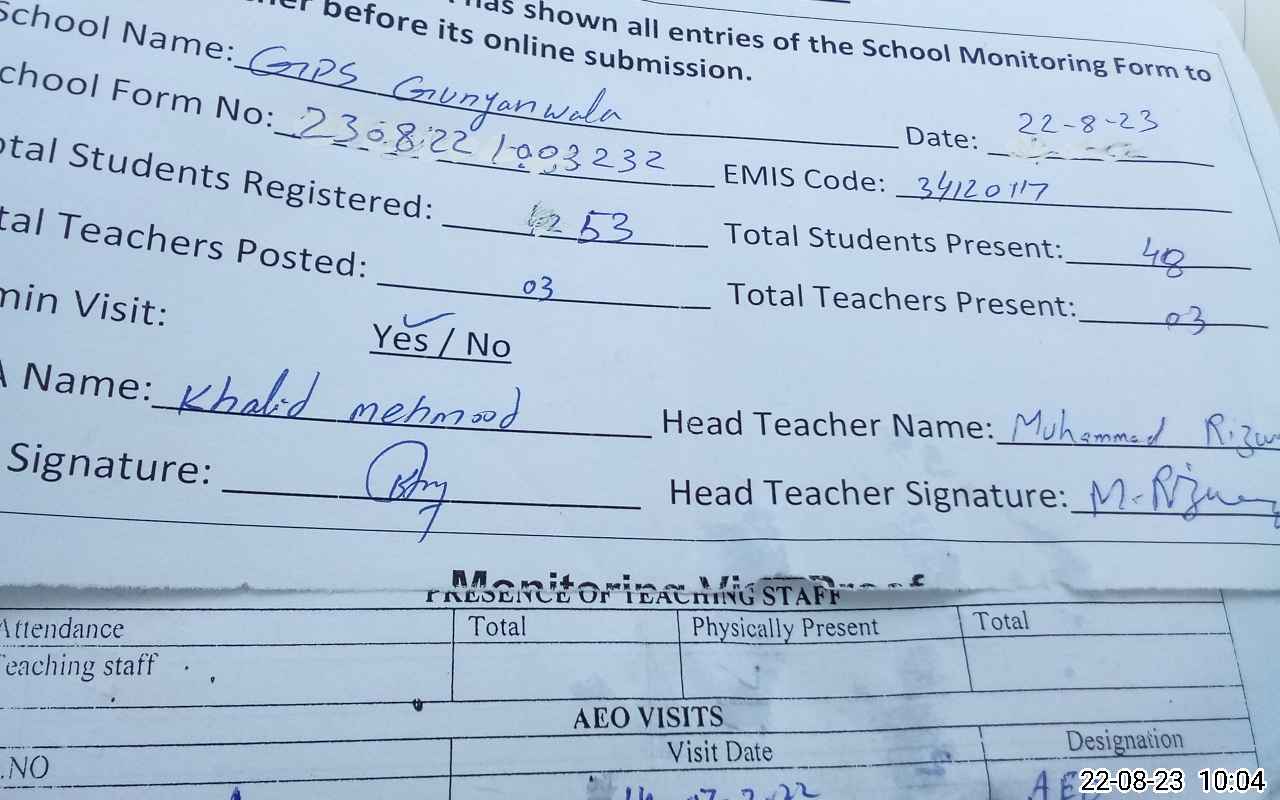 has shown all entries of the School Monitoring Form to
before its online submission.
School Name: GPS Gunyanwala
School Form No: 230822 1003232 Date: 22-8-23
Total Students Registered: 53 EMIS Code: 34120117
Total Teachers Posted: 03 Total Students Present: 48
min Visit: Yes / No Total Teachers Present: 03
A Name: Khalid mehmood Head Teacher Name: Muhammad Rizw
Signature: Head Teacher Signature: M. Rizw
Monitoring Visit Proof
PRESENCE OF TEACHING STAFF
Attendance Total Physically Present Total
Teaching staff
AEO VISITS
.NO Visit Date Designation
AE
22-08-23 10:04